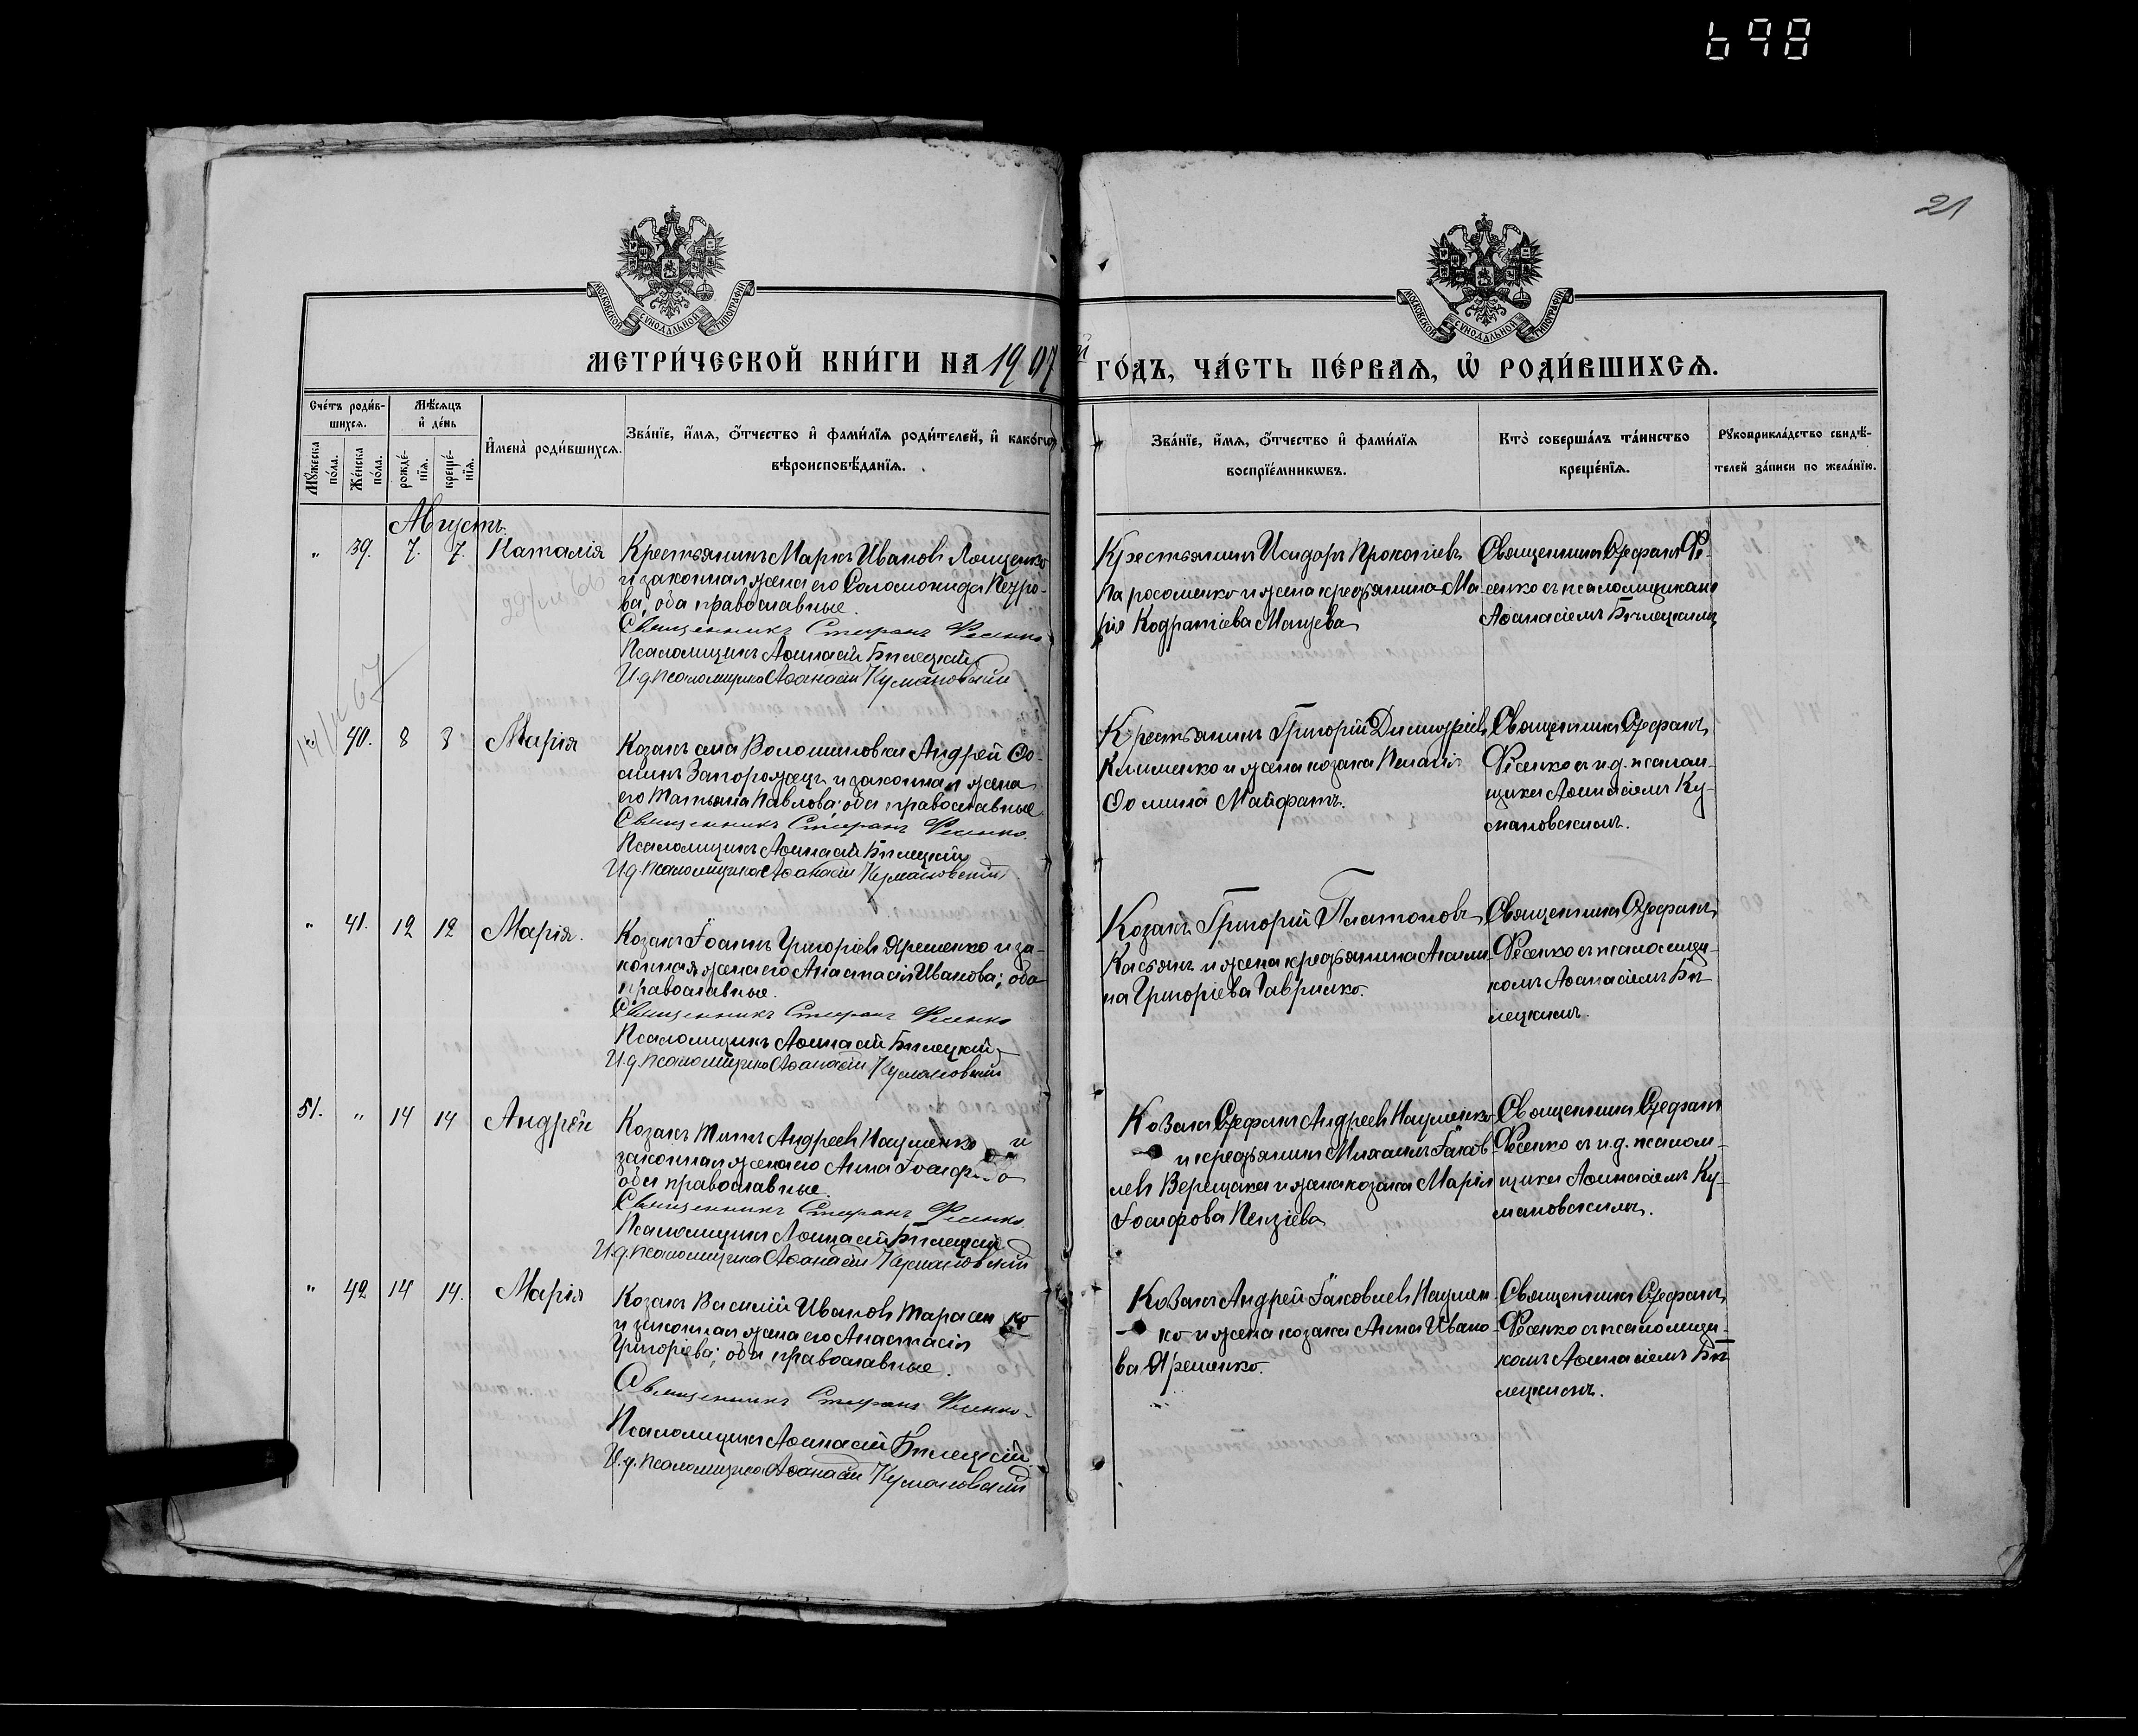 698
21
МОСКОВСКОЙ СѴНОДАЛЬНОЙ ТИПОГРАФІИ
МОСКОВСКОЙ СѴНОДАЛЬНОЙ ТИПОГРАФІИ
МЕТРИ́ЧЕСКОЙ КНИ́ГИ НА 1907й ГО́ДЪ, ЧА́СТЬ ПЕ́РВАѦ, Ѡ҆ РОДИ́ВШИХСѦ.
Сче́тъ роди́в-
шихсѧ.
Мꙋ́жеска по́ла.
Же́нска по́ла.
Мѣ́сѧцъ
и҆ де́нь
рожде́-
нїѧ.
креще́-
нїѧ.
И҆мена̀ роди́вшихсѧ.
Зва́нїе, и҆́мѧ, ѻ҆́тчество и҆ фами́лїѧ роди́телей, и҆ како́гѡ
вѣроисповѣ́данїѧ.
Зва́нїе, и҆́мѧ, ѻ҆́тчество и҆ фами́лїѧ
воспрїе́мникѡвъ.
Кто̀ соверша́лъ та́инство
креще́нїѧ.
Рꙋкоприкла́дство свидѣ́-
телей за́писи по жела́нїю.
Августъ.
" 39. 7. 7. Наталія
Крестьянинъ Маркъ Ивановъ Лоценко
и законная жена его Соломонида Петро-
ва, оба православные.
Священникъ Стефанъ Фесенко
Псаломщикъ Аѳанасій Билецкій
И.д. псаломщика Аѳанасій Кумановскій
Крестьянинъ Исидоръ Прокопіевъ
Паросоченко и жена крестьянина Ма-
рія Кодратіева
Священникъ Стефанъ Фе-
сенко съ псаломщикомъ
Аѳанасіемъ Билецкимъ
40. 8 8 Марія
Козакъ села Волошиновки Андрей Ѳо-
минъ Запорожецъ и законная жена
его Татьяна Павлова; оба православные
Священникъ Стефанъ Фесенко.
Псаломщикъ Аѳанасій Билецкій
И.д. псаломщика Аѳанасій Кумановскій
Крестьянинъ Григорій Димитріевъ
Клименко и жена козака Пелагія
Ѳомина Майфатъ.
Священникъ Стефанъ
Фесенко съ и.д. псалом-
щика Аѳанасіемъ Ку-
мановскимъ.
" 41. 12 12 Марія.
Козакъ Іоаннъ Григоріевъ Яременко и за-
конная жена его Анастасія Иванова; оба
православные.
Священникъ Стефанъ Фесенко
Псаломщикъ Аѳанасій Билецкій
И.д. псаломщика Аѳанасій Кумановскій
Козакъ Григорій Платоновъ
Касьянъ и жена крестьянина Акили-
на Григоріева Гаврилко.
Священникъ Стефанъ
Фесенко съ псаломщи-
комъ Аѳанасіемъ Би-
лецкимъ.
51. " 14 14 Андрей
Козакъ Титъ Андреевъ Науменко и
законная жена его Анна Іосифо
оба православные.
Священникъ Стефанъ Фесенко
Псаломщикъ Аѳанасій Билецкій
И.д. псаломщика Аѳанасій Кумановскій
Козакъ Стефанъ Андреевъ Науменко
и крестьянинъ Михаилъ Іаков-
левъ Верещака и жена козака Марія
Іосифова
Священникъ Стефанъ
Фесенко съ и.д. псалом-
щика Аѳанасіемъ Ку-
мановскимъ.
" 42 14 14. Марія
Козакъ Василій Ивановъ Тарасенко
и законная жена его Анастасія
Григоріева; оба православные.
Священникъ Стефанъ Фесенко
Псаломщикъ Аѳанасій Билецкій
И.д. псаломщика Аѳанасій Кумановскій
Козакъ Андрей Іаковлевъ Наумен-
ко и жена козака Анна Ивано-
ва Яременко.
Священникъ Стефанъ
Фесенко съ псаломщи-
комъ Аѳанасіемъ Би-
лецкимъ.